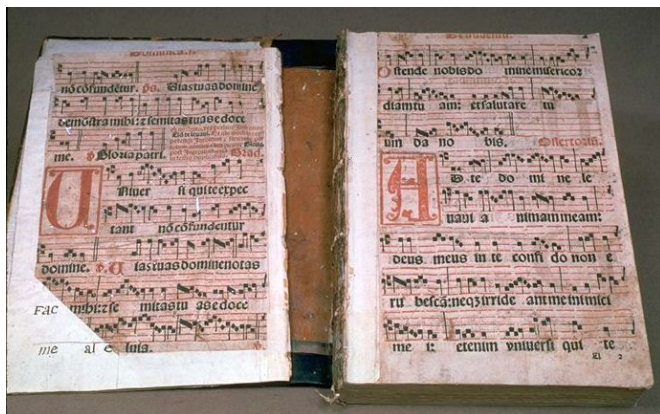 Dominica. I.
nō cōfundētur. ps. Uias tuas domine
demōstra mihi: ⁊ semitas tuas edoce
me. Gloria patri. Grad.
Uniuer si qui te expec
tant nō cōfundentur
domine. ℣. Uias tuas domine notas
Fac mihi: ⁊ se mitas tu as edoce
me al e luia.
Ostende nobis do mine misericor
diam tu am: et salutare tu
um da no bis. Offertoriū.
AD te do mi ne le
uaui a nimam meam:
deus meus in te confi do non e
ru bescā: neqȝ irride ant me inimici
me i: etenim vniuersi qui te